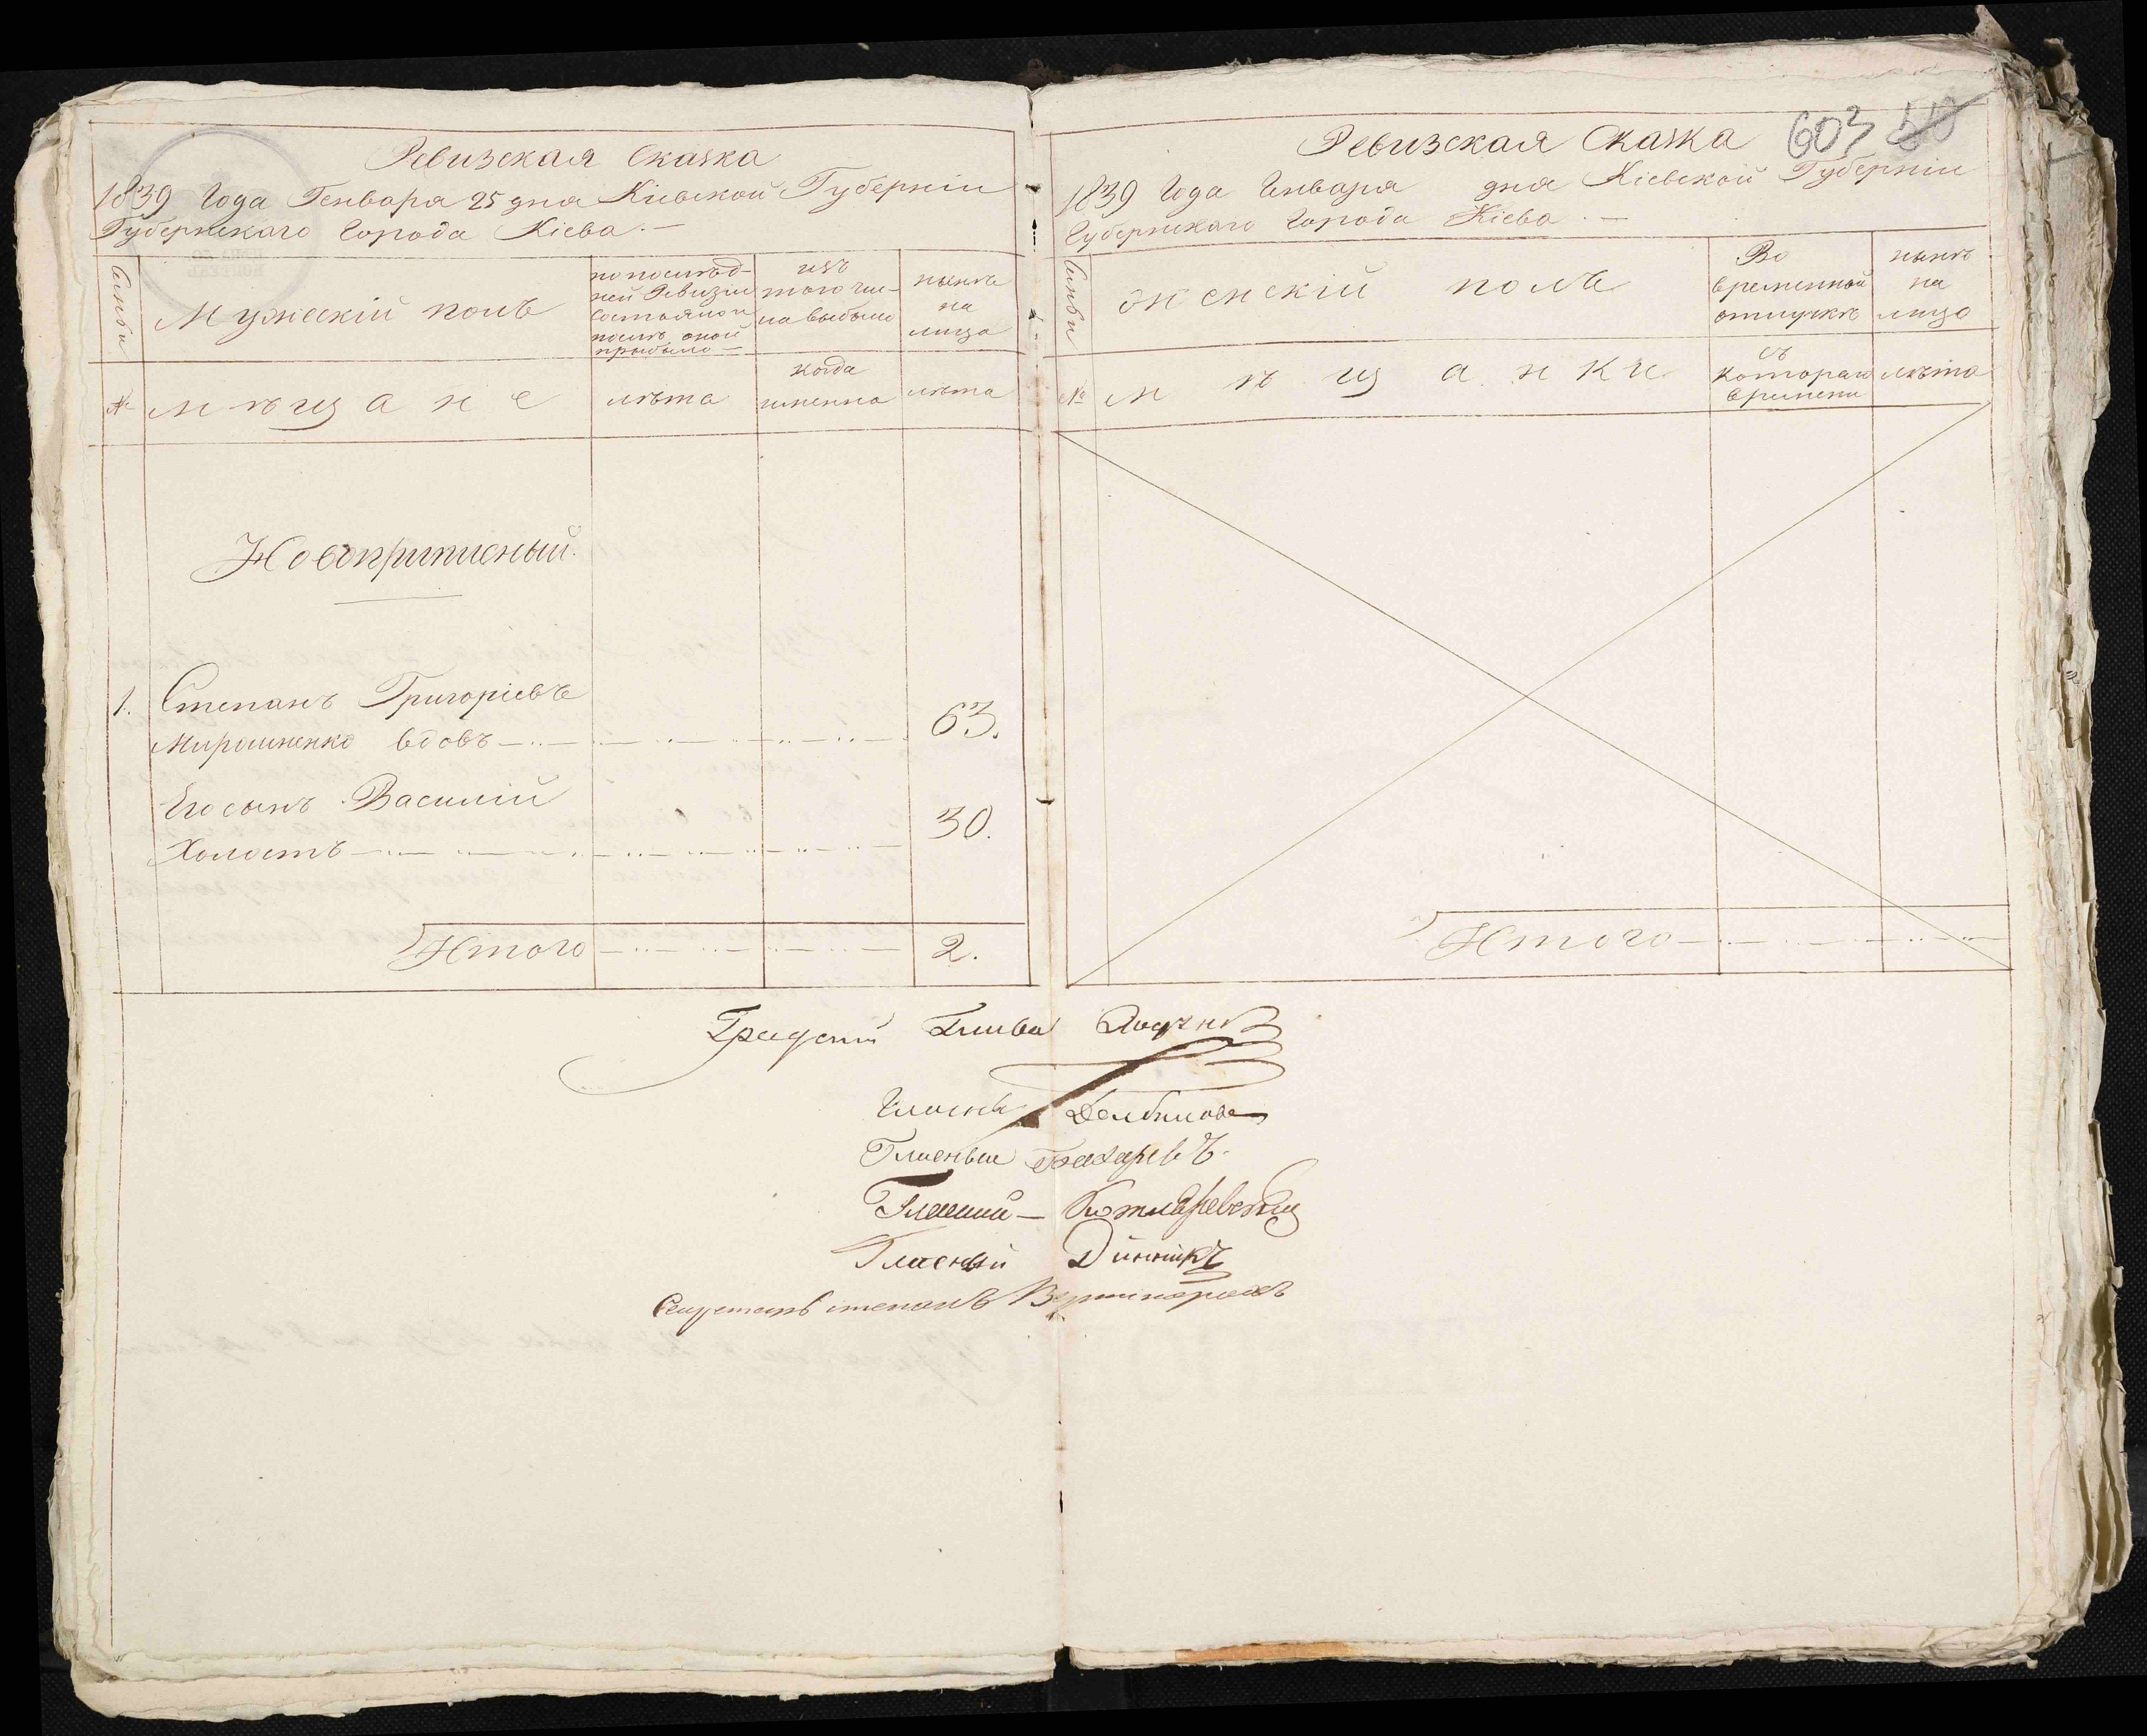 Ревизская Сказка
1839 Года Генваря 25 дня Кіевской Губерніи
Губернскаго Города Кіева.
Семьи
Мужескій полъ
по послѣд-
ней Ревизіи
состояло и
послѣ оной
прибыло
изъ
того чис-
ла выбыло
нынѣ
на
лицо
№
мѣщане
лѣта
когда
именно
лѣта
Новоприписный.
1. Степанъ Григоріевъ
Мирошненко вдовъ 63.
Его сынъ Василій
Холостъ 30.
Итого 2.
603
Ревизская Сказка
1839 Года Генваря дня Кіевской Губерніи
Губернскаго Города Кіева.
Семьи
женскій полъ
Во
временной
отлучкѣ
нынѣ
на
лицо
№
мѣщанки
съ
котораго
времени
лѣта
Итого
Градскій Глава
Гласный
Гласный Бухаревъ
Гласный Котляревскій
Гласный Динникъ
Секретарь Степанъ